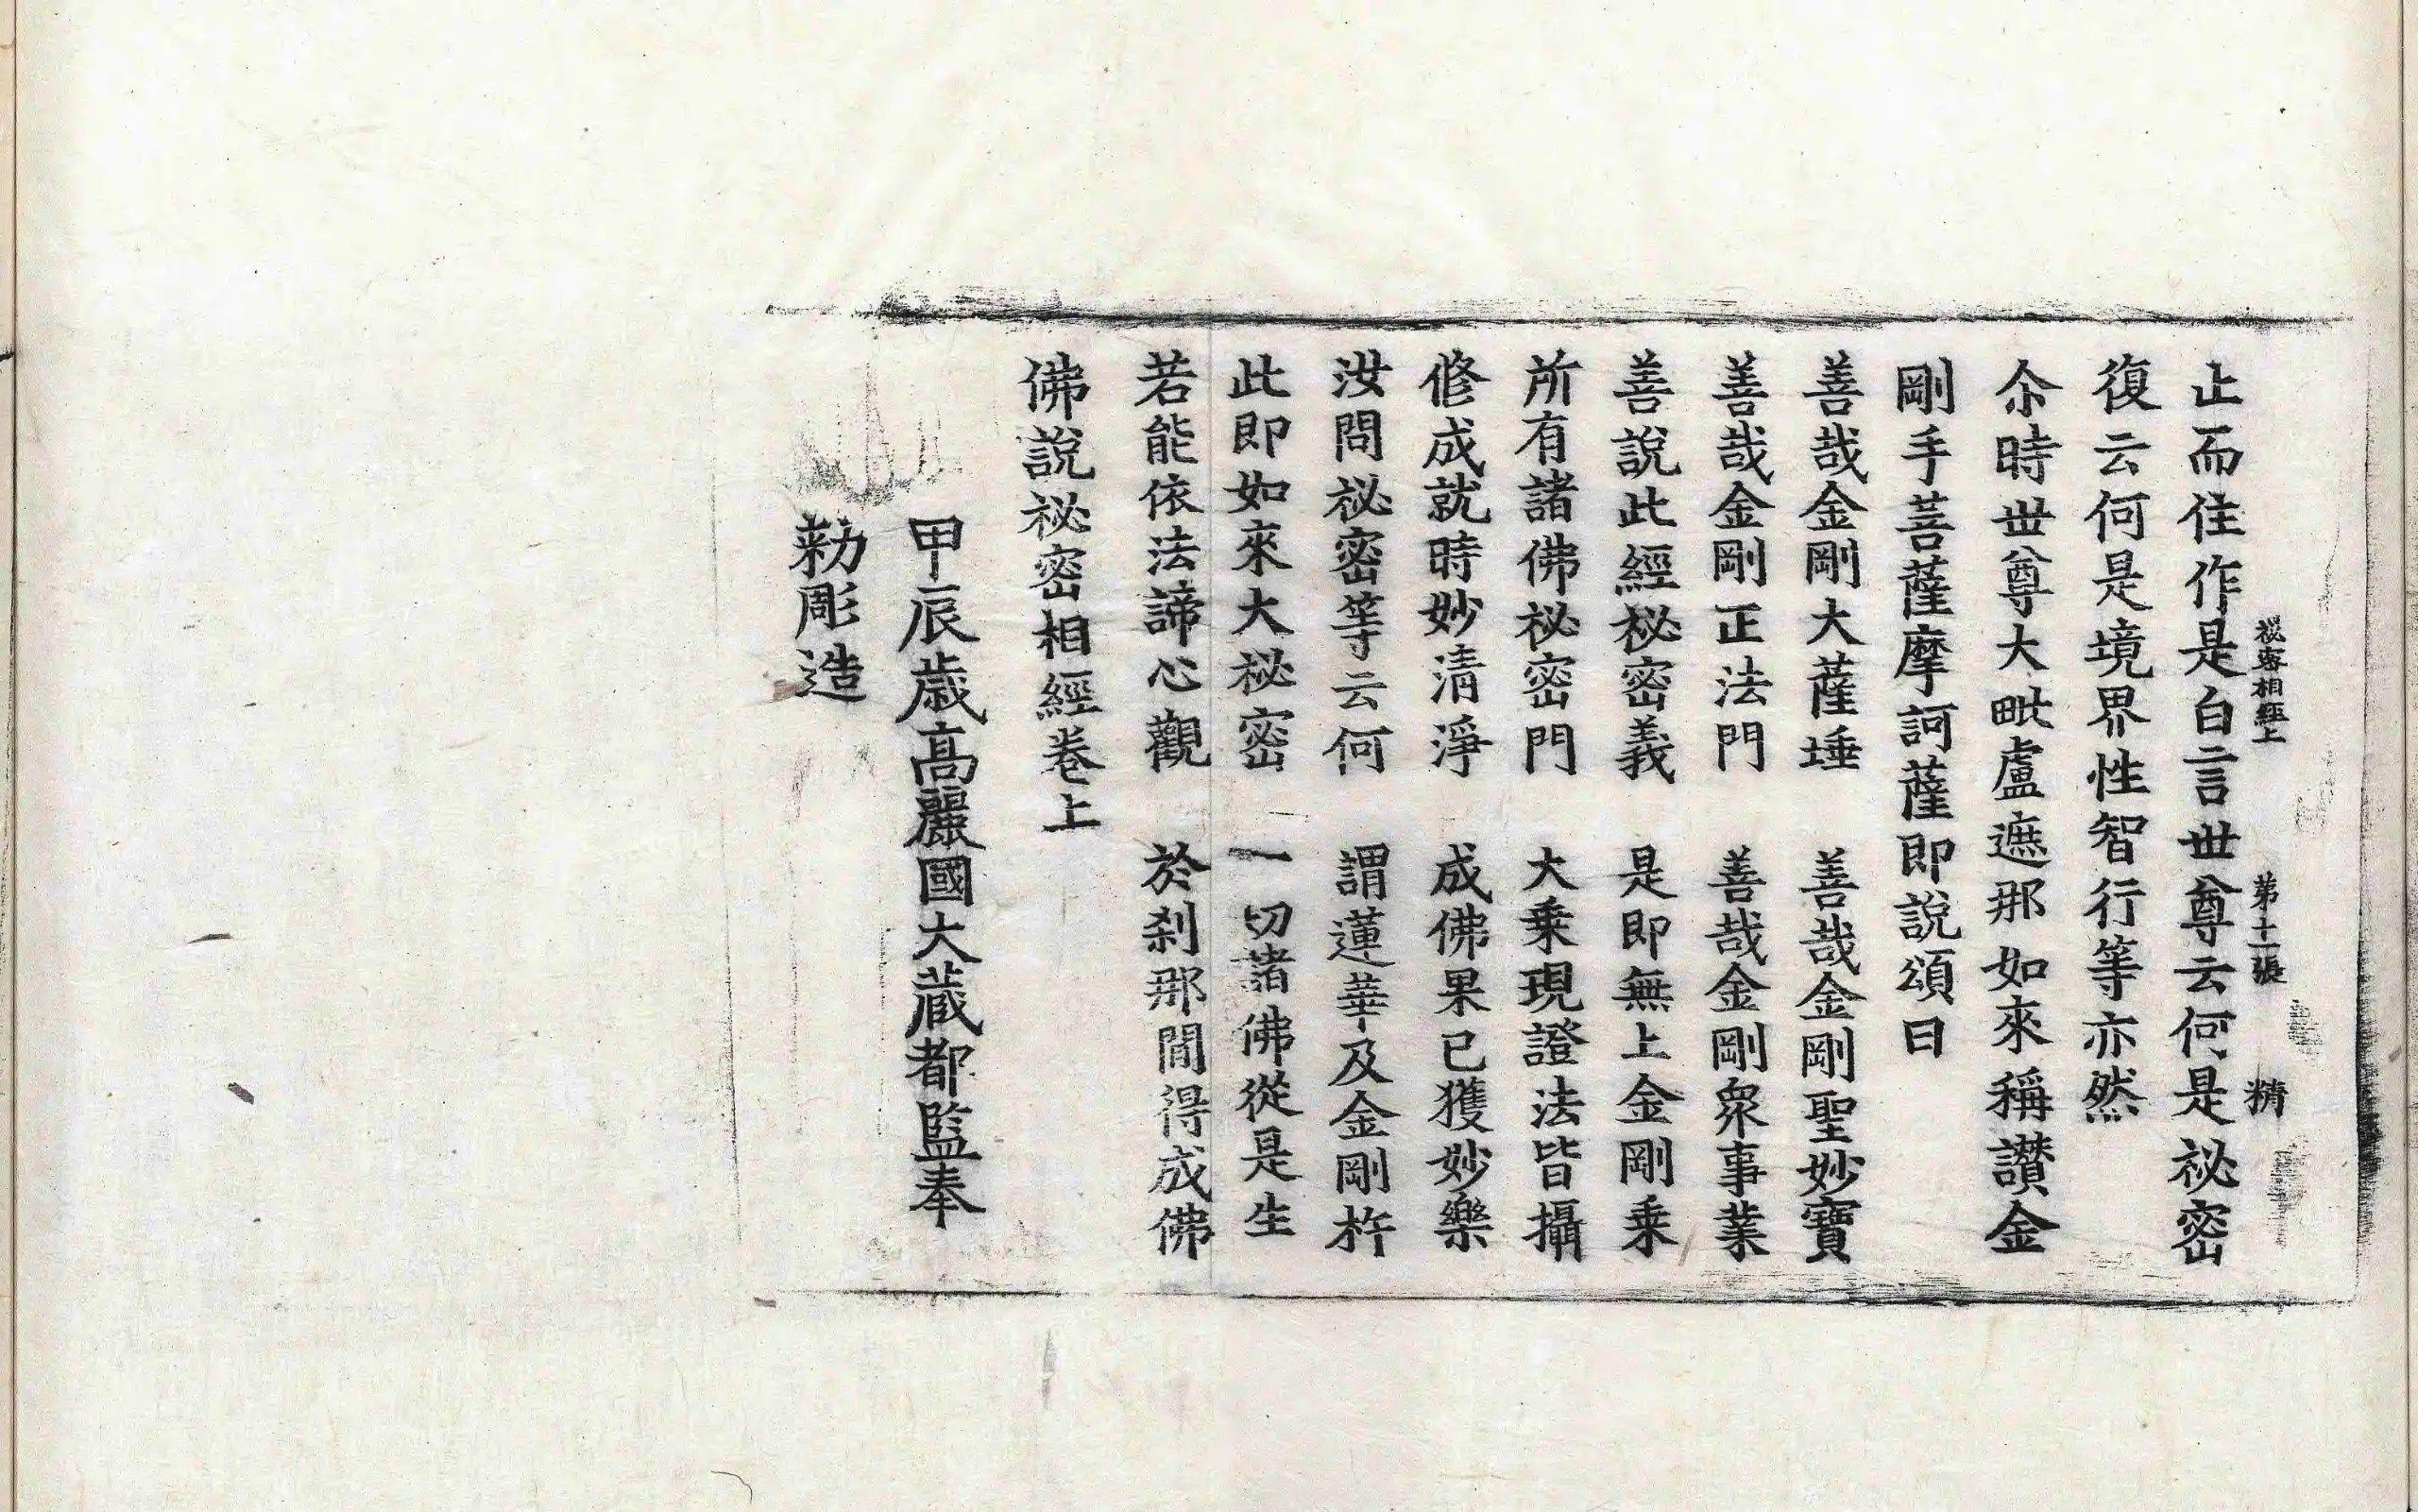 秘密相經上 第十一張 精
止而住作是白言世尊云何是祕密
復云何是境界性智行等亦然
尒時世尊大毗盧遮那如來稱讃金
剛手菩薩摩訶薩即說頌曰
善哉金剛大薩埵 善哉金剛聖妙寶
善哉金剛正法門 善哉金剛衆事業
善說此經秘密義 是即無上金剛乗
所有諸佛祕密門 大乗現證法皆攝
修成就時妙清淨 成佛果已獲妙樂
汝問祕密等云何 謂蓮華及金剛杵
此即如來大祕密 一切諸佛從是生
若能依法諦心觀 於刹那間得成佛
佛說祕密相經卷上
甲辰歲高麗國大藏都監奉
勑彫造